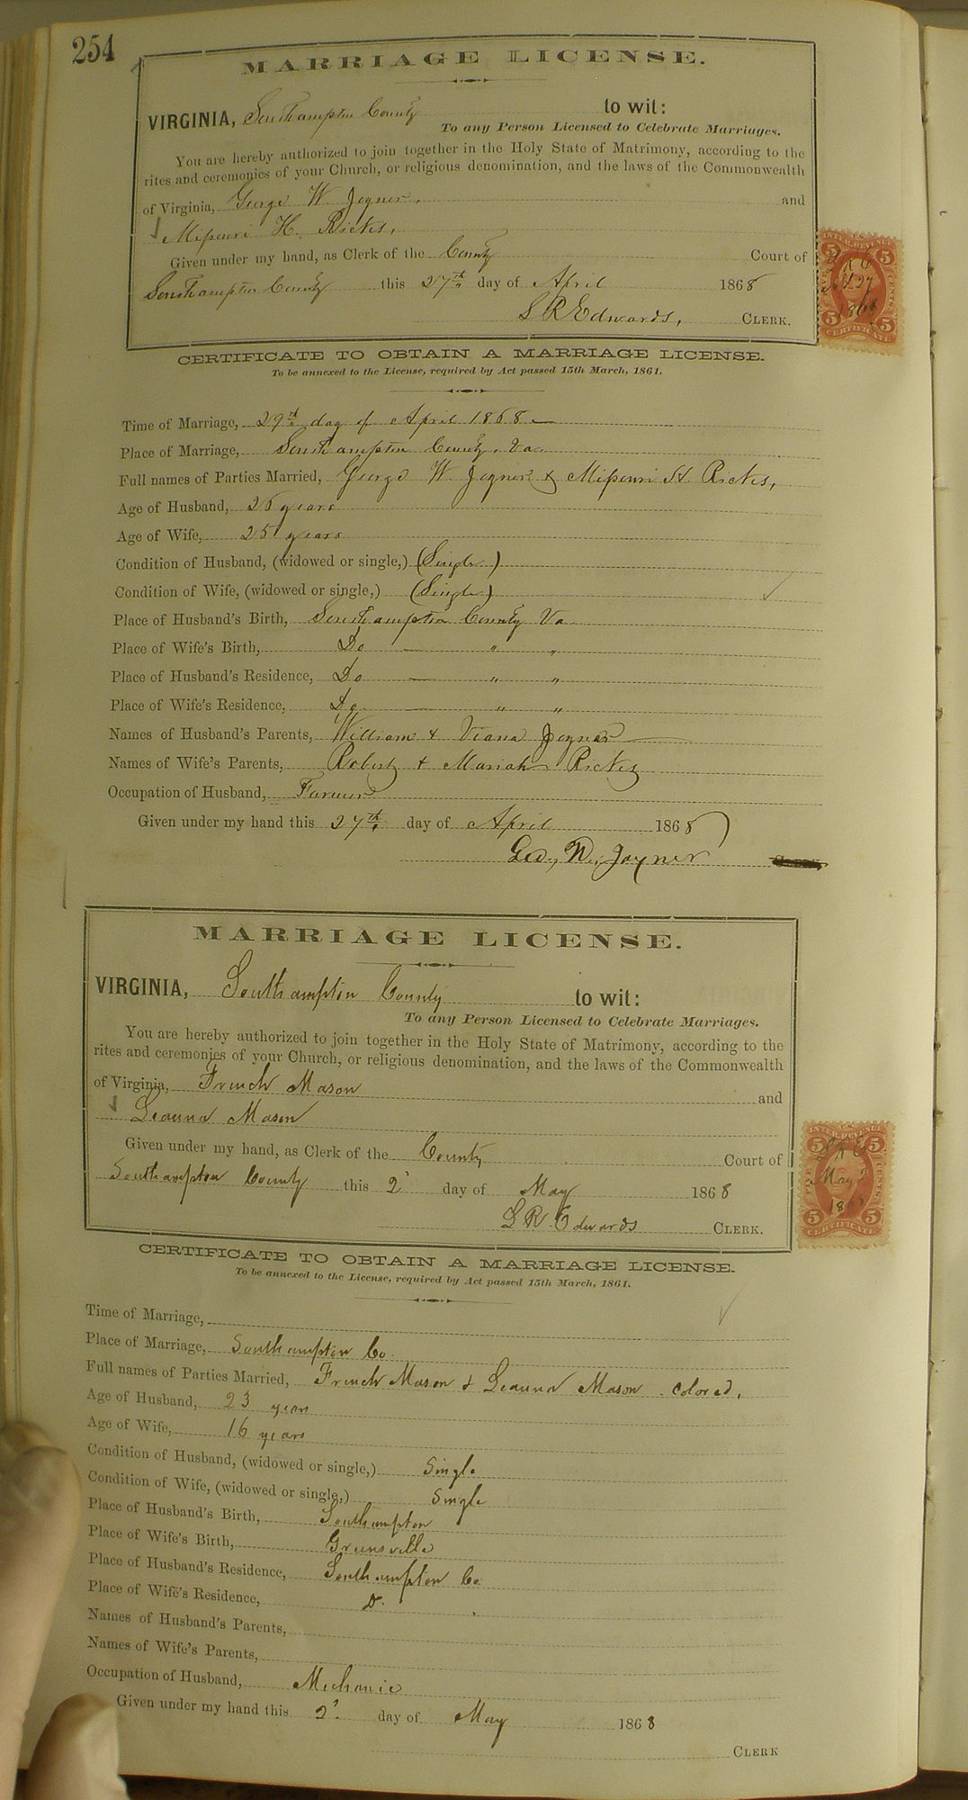 254
MARRIAGE LICENSE.
VIRGINIA, Southampton County to wit:
To any Person Licensed to Celebrate Marriages.
You are hereby authorized to join together in the Holy State of Matrimony, according to the
rites and ceremonies of your Church, or religious denomination, and the laws of the Commonwealth
of Virginia, George W Joyner, and
Missouri H. Ricks,
Given under my hand, as Clerk of the County Court of
Southampton County this 27th day of April 1868
L R Edwards, CLERK.
CERTIFICATE TO OBTAIN A MARRIAGE LICENSE.
To be annexed to the License, required by Act passed 15th March, 1861.
Time of Marriage, 29th day of April 1868
Place of Marriage, Southampton County, Va
Full names of Parties Married, George W Joyner & Missouri H. Ricks,
Age of Husband, 26 years
Age of Wife, 25 years
Condition of Husband, (widowed or single,) (Single)
Condition of Wife, (widowed or single,) (Single)
Place of Husband's Birth, Southampton County Va
Place of Wife's Birth, Do — " "
Place of Husband's Residence, Do — " "
Place of Wife's Residence, Do — " "
Names of Husband's Parents, William & Viana Joyner
Names of Wife's Parents, Robert & Mariah Ricks
Occupation of Husband, Farmer
Given under my hand this 27th day of April 1868
Geo. W. Joyner
MARRIAGE LICENSE.
VIRGINIA, Southampton County to wit:
To any Person Licensed to Celebrate Marriages.
You are hereby authorized to join together in the Holy State of Matrimony, according to the
rites and ceremonies of your Church, or religious denomination, and the laws of the Commonwealth
of Virginia, French Mason and
Leanna Mason
Given under my hand, as Clerk of the County Court of
Southampton County this 2 day of May 1868
L R Edwards CLERK.
CERTIFICATE TO OBTAIN A MARRIAGE LICENSE.
To be annexed to the License, required by Act passed 15th March, 1861.
Time of Marriage,
Place of Marriage, Southampton Co
Full names of Parties Married, French Mason & Leanna Mason colored,
Age of Husband, 23 years
Age of Wife, 16 years
Condition of Husband, (widowed or single,) Single
Condition of Wife, (widowed or single,) Single
Place of Husband's Birth, Southampton
Place of Wife's Birth, Greensville
Place of Husband's Residence, Southampton Co
Place of Wife's Residence,
Names of Husband's Parents,
Names of Wife's Parents,
Occupation of Husband, Mechanic
Given under my hand this 2 day of May 1868
CLERK